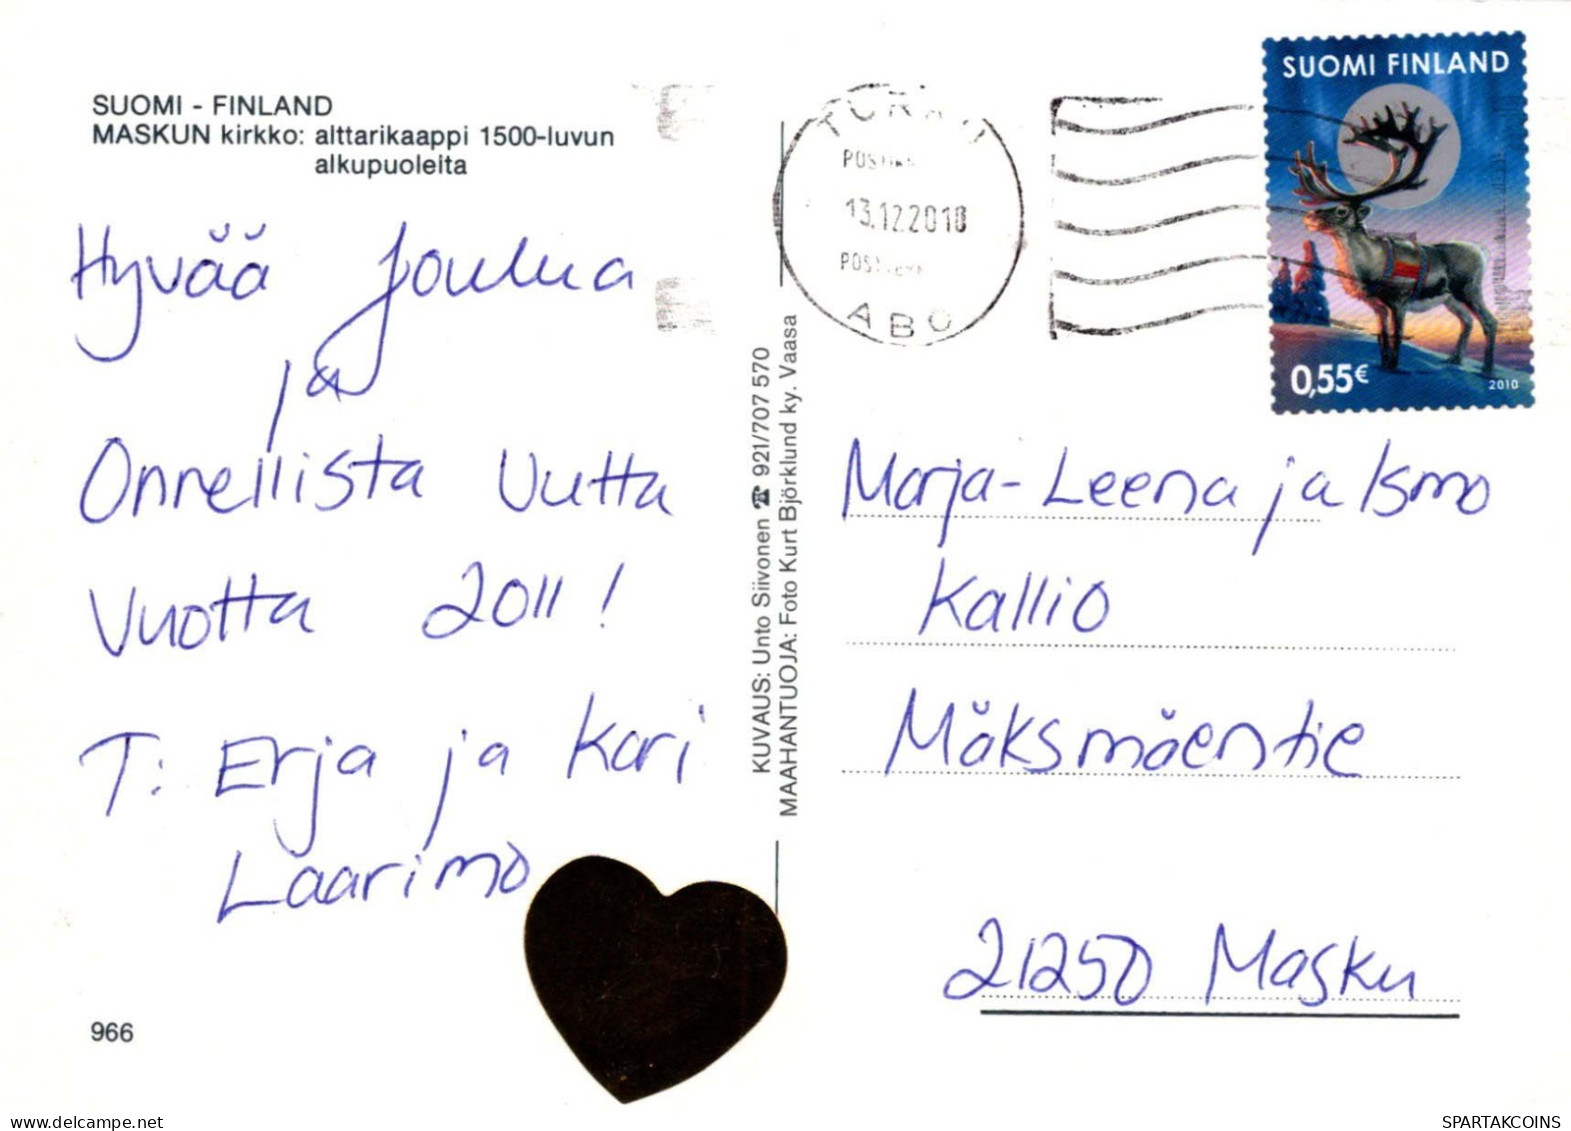 SUOMI - FINLAND
MASKUN kirkko: alttarikaappi 1500-luvun
alkupuolelta
Hyvää Joulua
ja
Onnellista Uutta
Vuotta 2011!
T: Erja ja Kari
Laarimo
966
KUVAUS: Unto Siivonen ☎ 921/707 570
MAAHANTUOJA: Foto Kurt Björklund ky. Vaasa
TURKU
13.12.2010
ABO
SUOMI FINLAND
0,55€
2010
Marja-Leena ja Ismo
Kallio
Mäksmäentie
21250 Masku
www.delcampe.net
SPARTAKCOINS